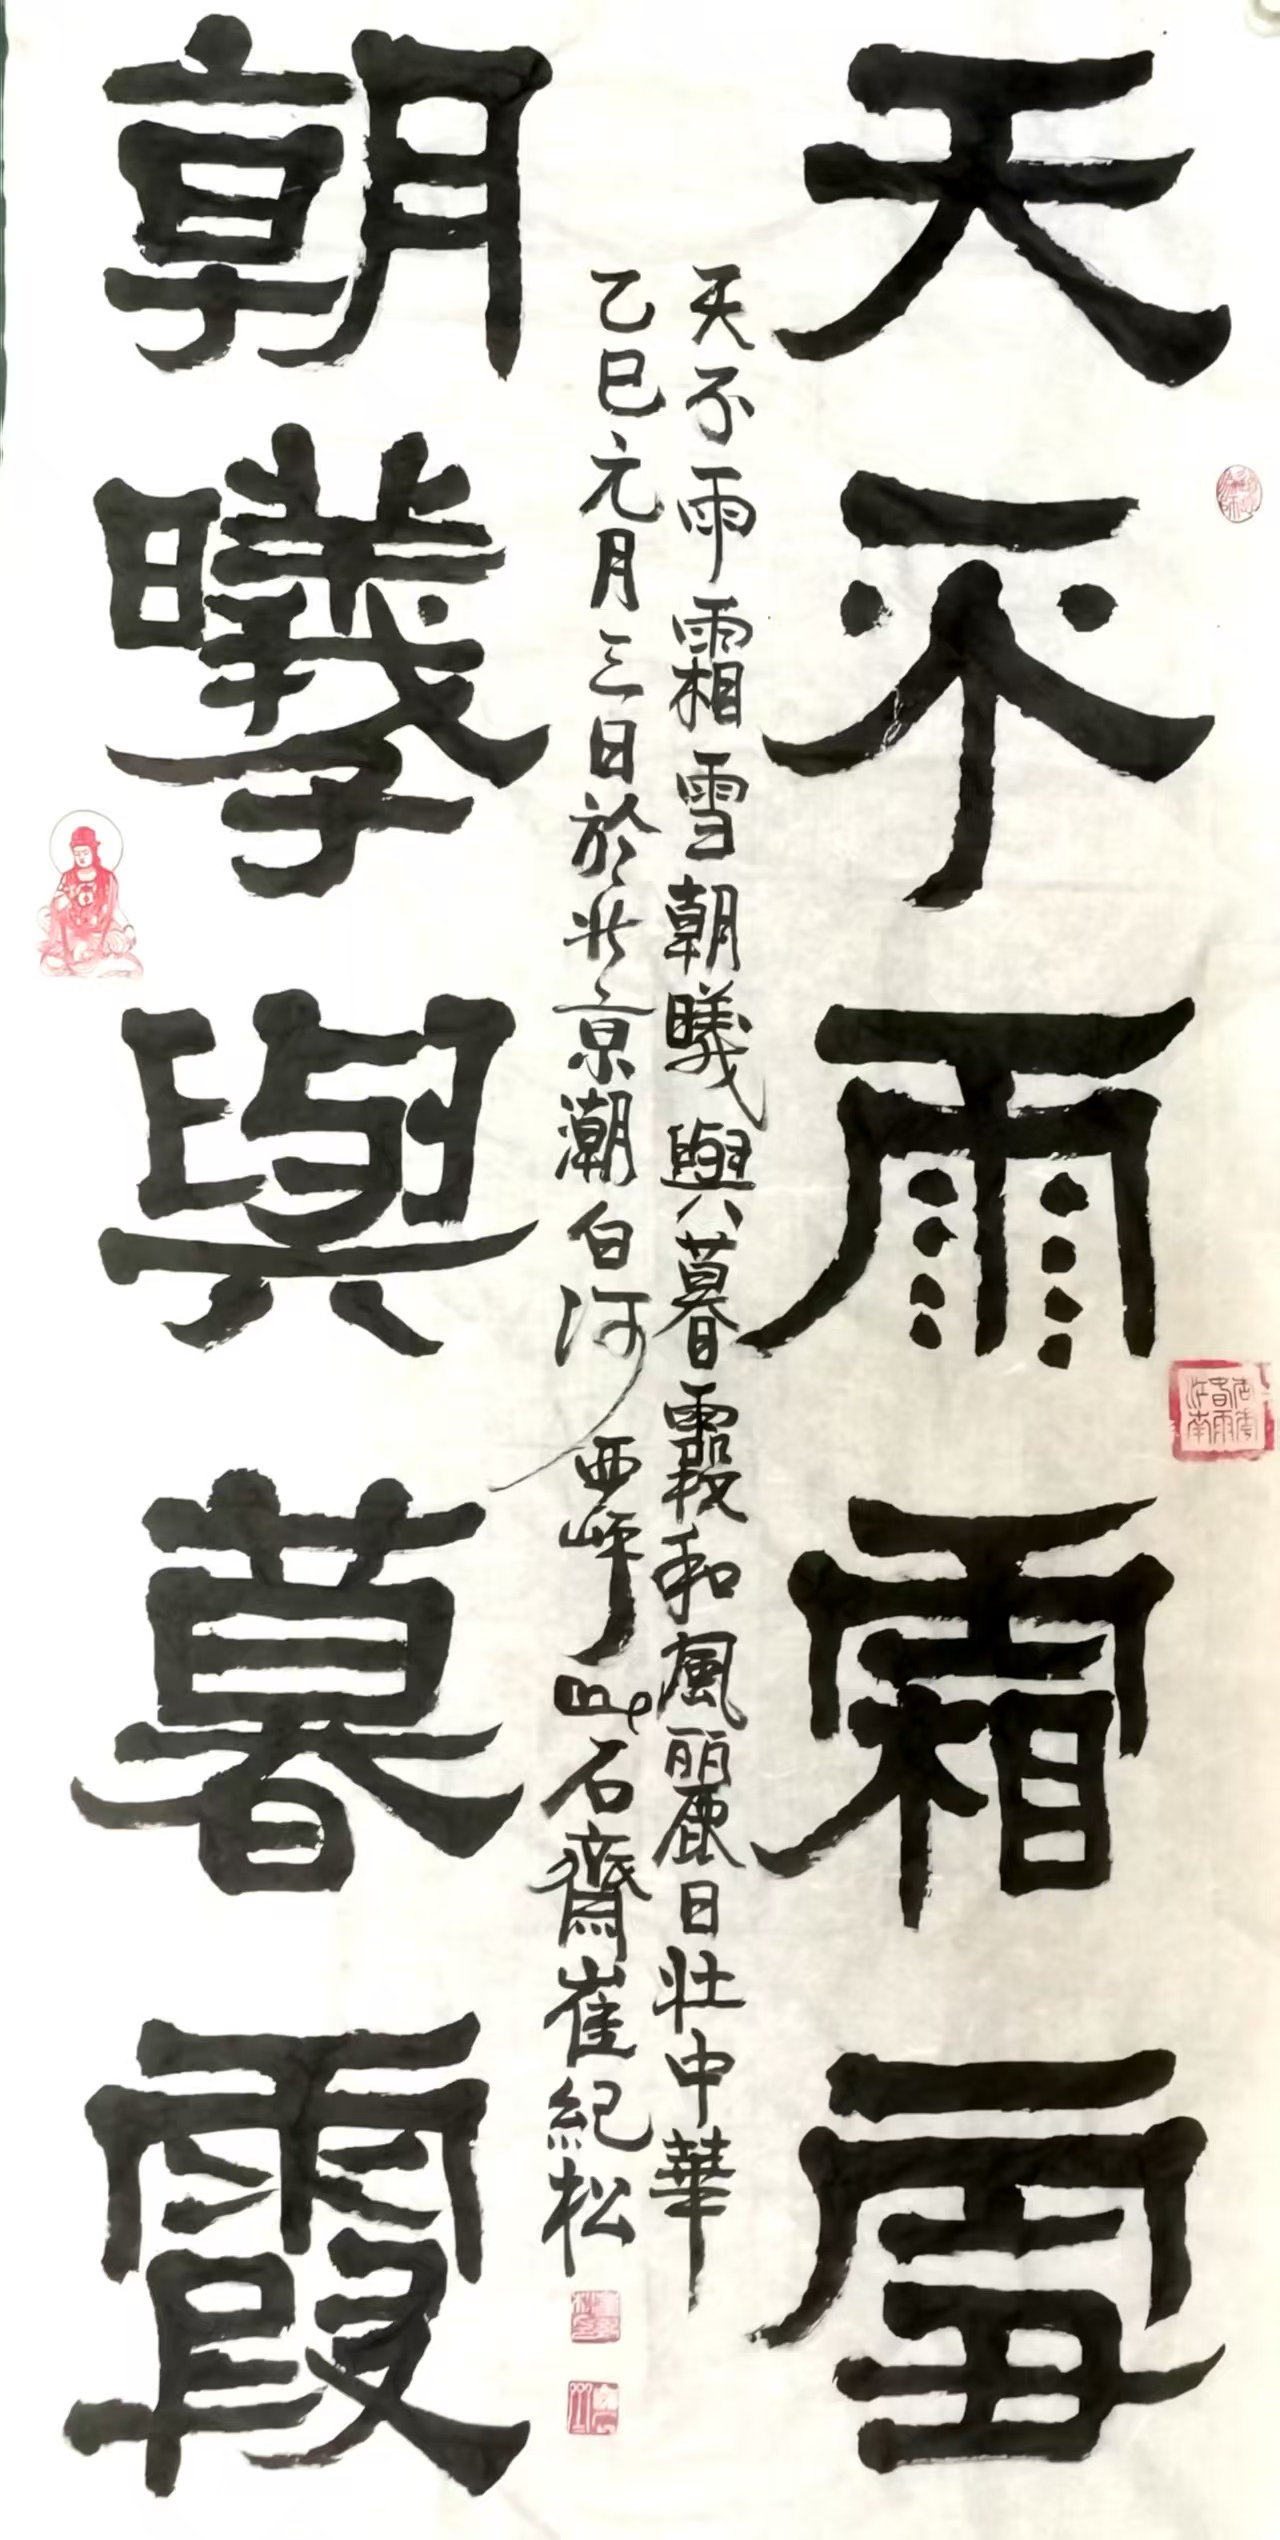 天不雨霜雪
朝曦與暮霞
天不雨霜雪朝曦與暮霞和風麗日壯中華
乙巳元月三日於北京潮白河西岸山石齋崔紀松